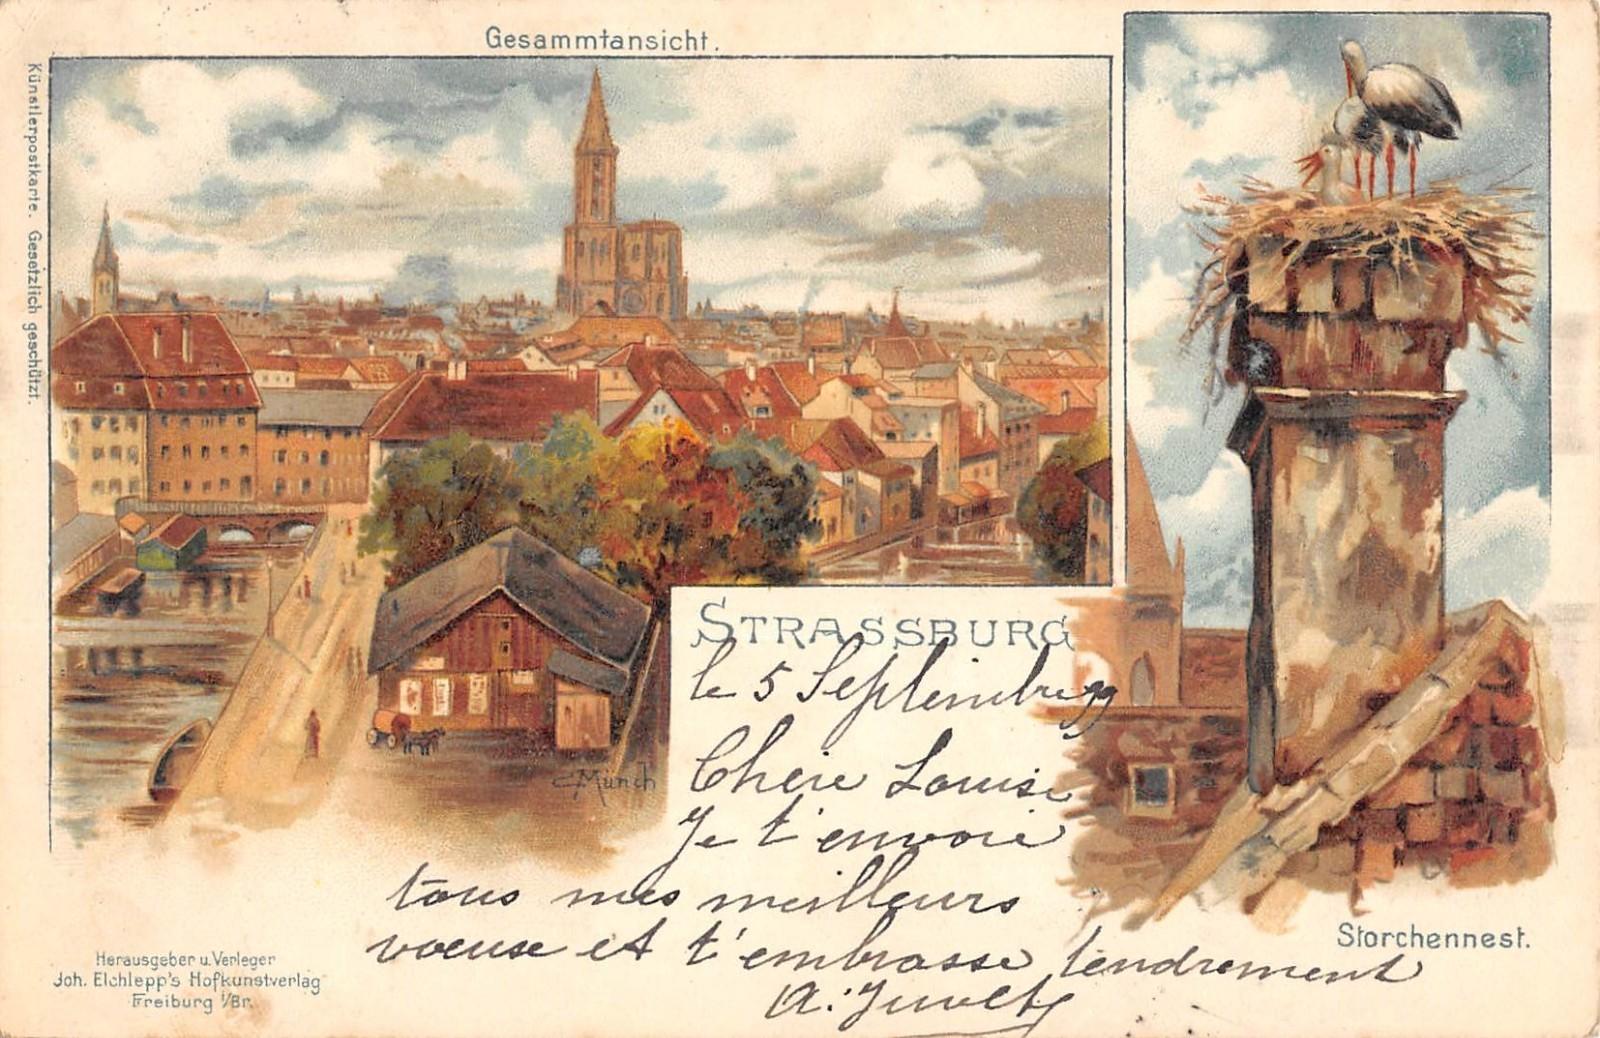 Gesammtansicht.
Künstlerpostkarte. Gesetzlich geschützt.
STRASSBURG
le 5 Septembre 99
Chere Louise
Je t'envoie
tous mes meilleurs
voeuse et t'embrasse tendrement
A.
C. Münch
Storchennest.
Herausgeber u. Verleger
Joh. Elchlepp's Hofkunstverlag
Freiburg i/Br.